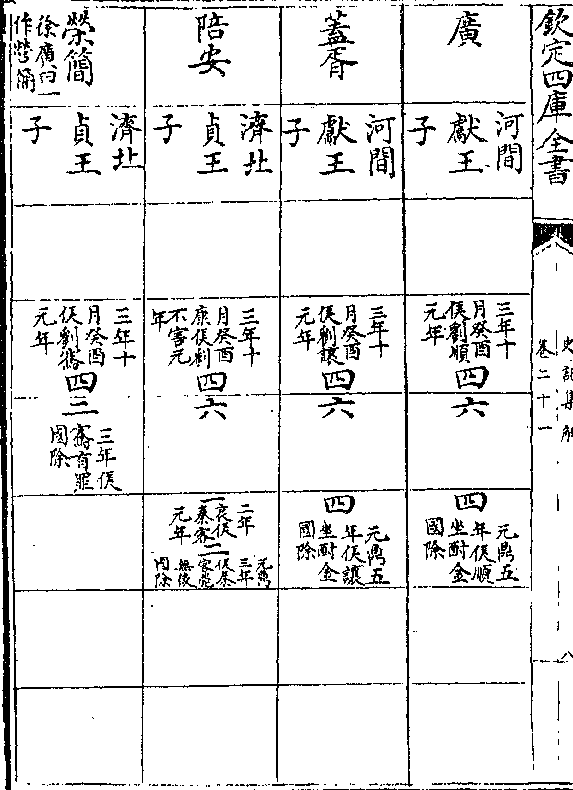 欽定四庫全書
史記集解
卷二十一
八
廣
河間
獻王
子
三年十
月癸酉
侯劉順
元年
四
六
四
元鼎五
年侯順
坐酎金
國除
蓋胥
河間
獻王
子
三年十
月癸酉
侯劉讓
元年
四
六
四
元鼎五
年侯讓
坐酎金
國除
陪安
濟北
貞王
子
三年十
月癸酉
康侯劉
不害元
年
四
六
一
二年
哀侯
秦客
元年
二
元鼎
三年
侯秦
客薨
無後
國除
榮簡
徐廣曰一
作營簡
濟北
貞王
子
三年十
月癸酉
侯劉騫
元年
四
三
三年侯
騫有罪
國除